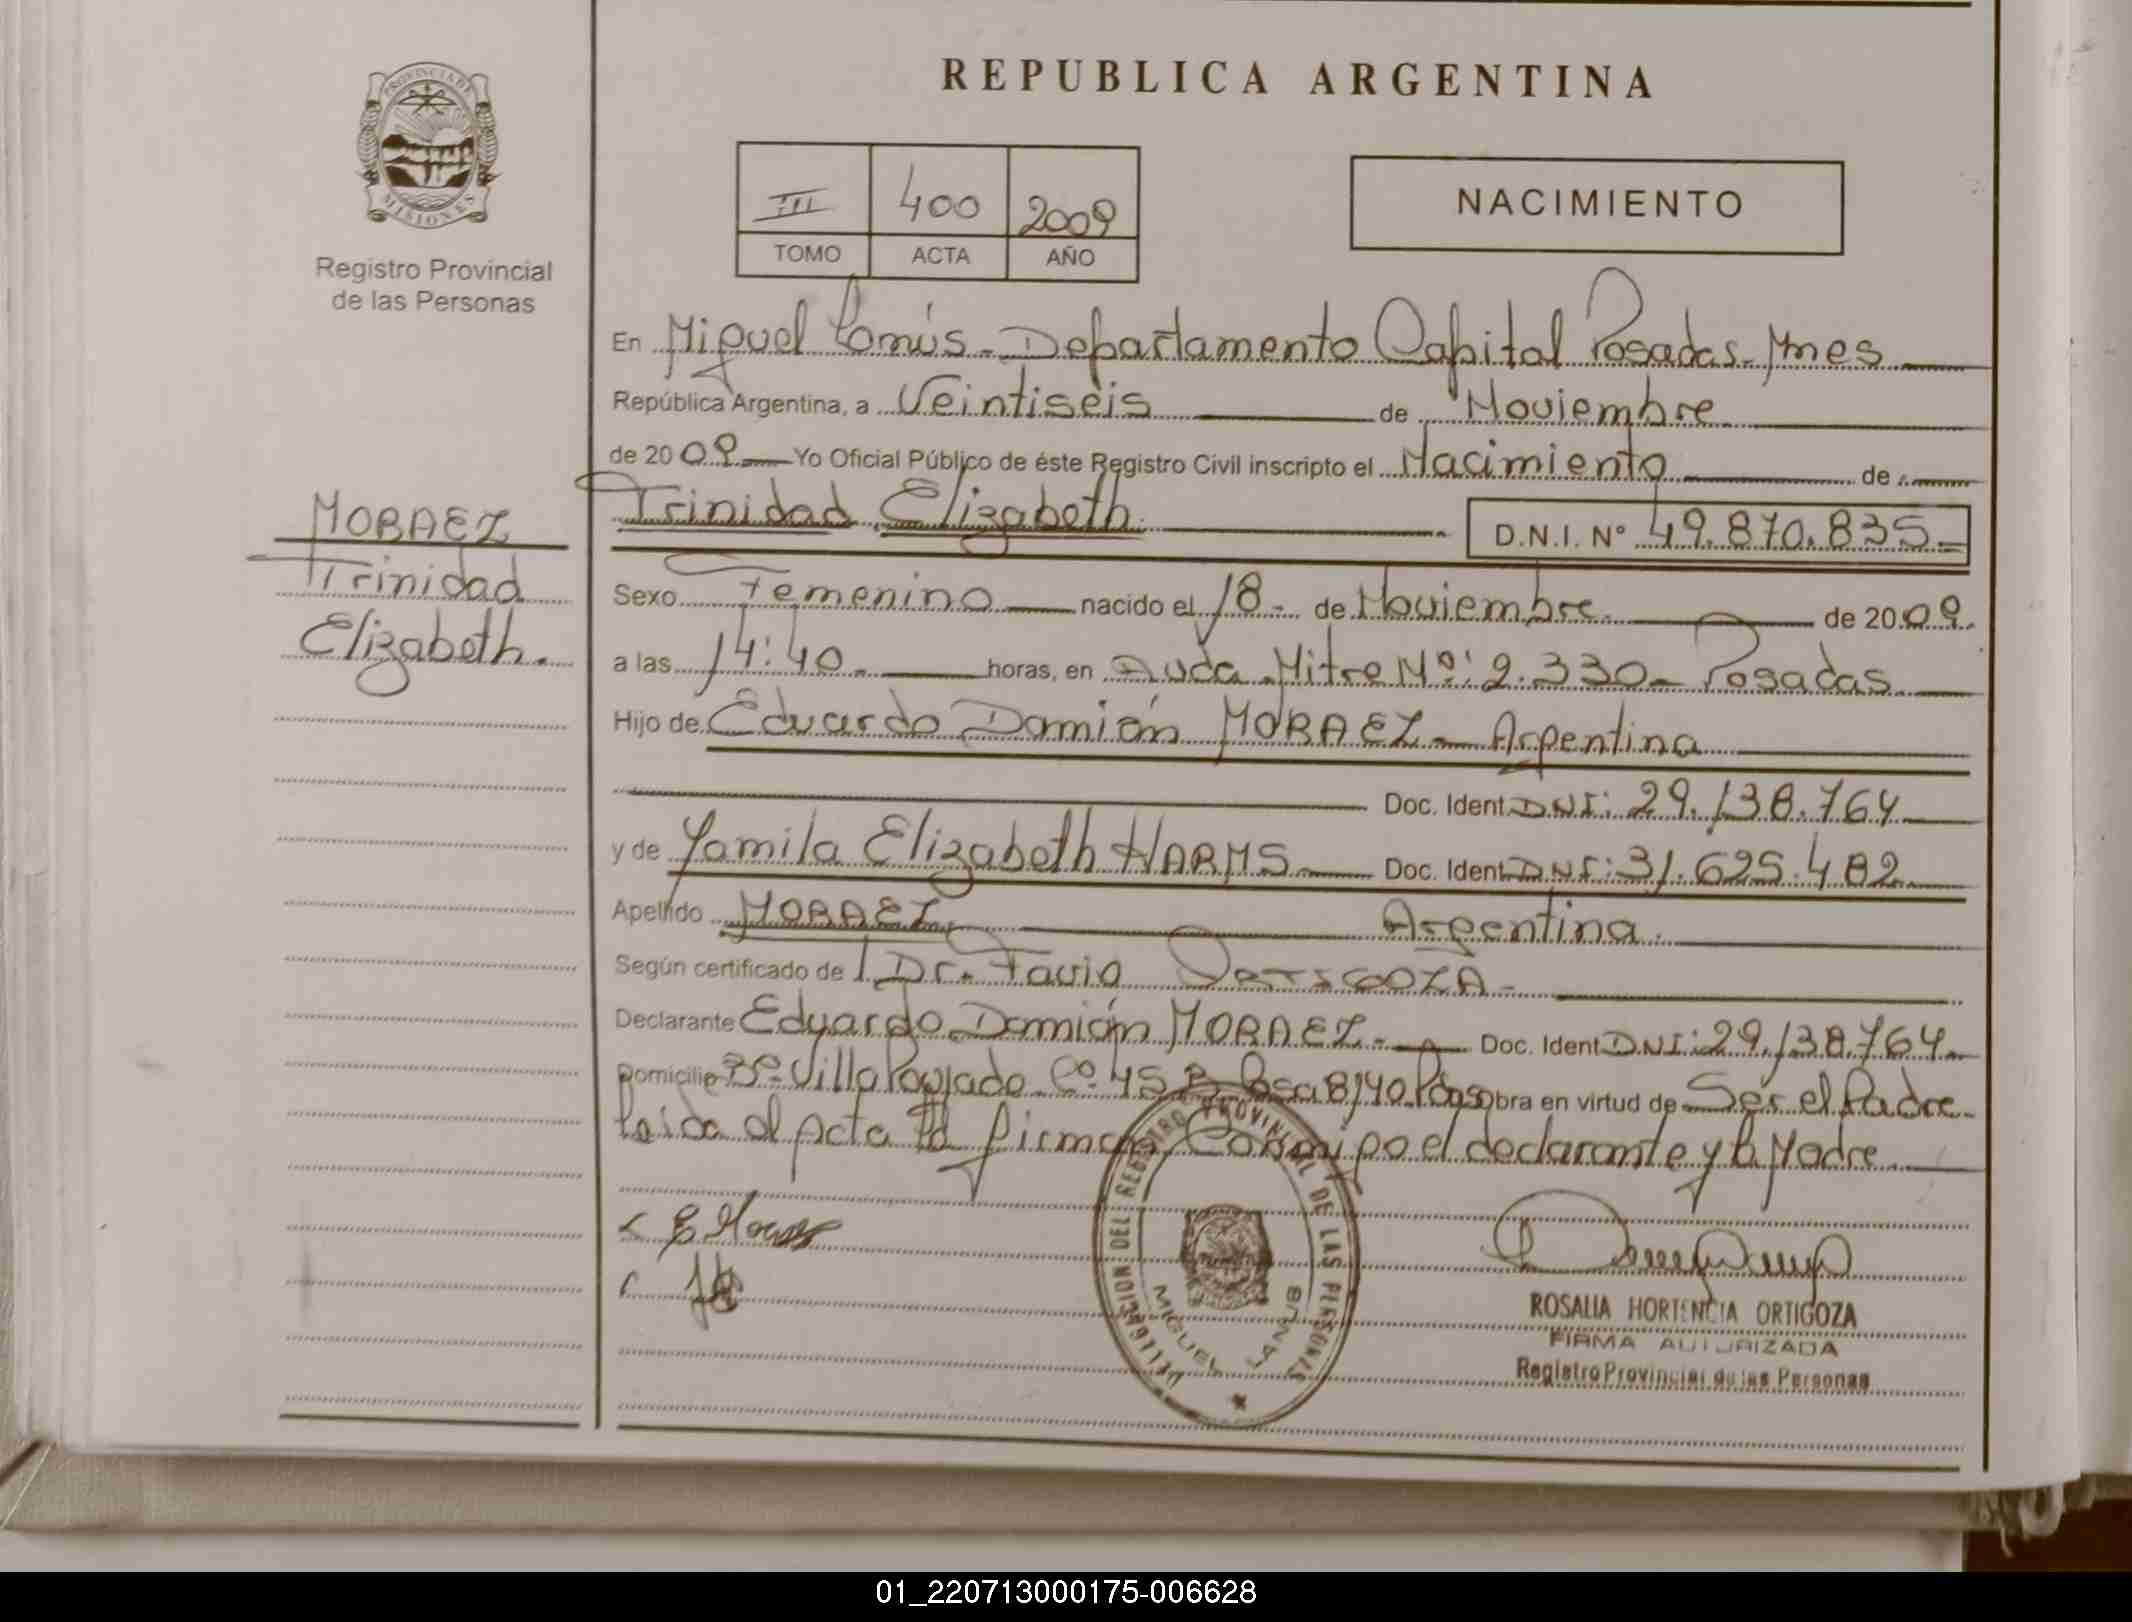 REPUBLICA ARGENTINA
PROVINCIA DE
MISIONES
Registro Provincial
de las Personas
III 400 2009
TOMO ACTA AÑO
NACIMIENTO
En Miguel Lanús - Departamento Capital Posadas - Mnes
República Argentina, a Veintiséis de Noviembre
de 2009 Yo Oficial Público de éste Registro Civil inscripto el Nacimiento de
Trinidad Elizabeth D.N.I. Nº 49.870.835
MORAEZ
Trinidad
Elizabeth.
Sexo Femenino nacido el 18 - de Noviembre de 2009.
a las 14:40. horas, en Avda. Mitre Nº: 2.330 - Posadas
Hijo de Eduardo Damián MORAEZ - Argentina
Doc. Ident DNI: 29.138.764
y de Yamila Elizabeth HARMS Doc. Ident DNI: 31.625.482
Apellido MORAEZ Argentina.
Según certificado de l Dr. Favio ORTIGOZA -
Declarante Eduardo Damián MORAEZ - Doc. Ident DNI: 29.138.764
Domicilio Bº Villa Poujade Cº 45 Casa 8140 Pdas obra en virtud de Ser el Padre.
Leída el Acta la firman Conmigo el declarante y la Madre
DELEGACION DEL REGISTRO PROVINCIAL DE LAS PERSONAS
MIGUEL LANUS
ROSALIA HORTENCIA ORTIGOZA
FIRMA AUTORIZADA
Registro Provincial de las Personas
01_220713000175-006628